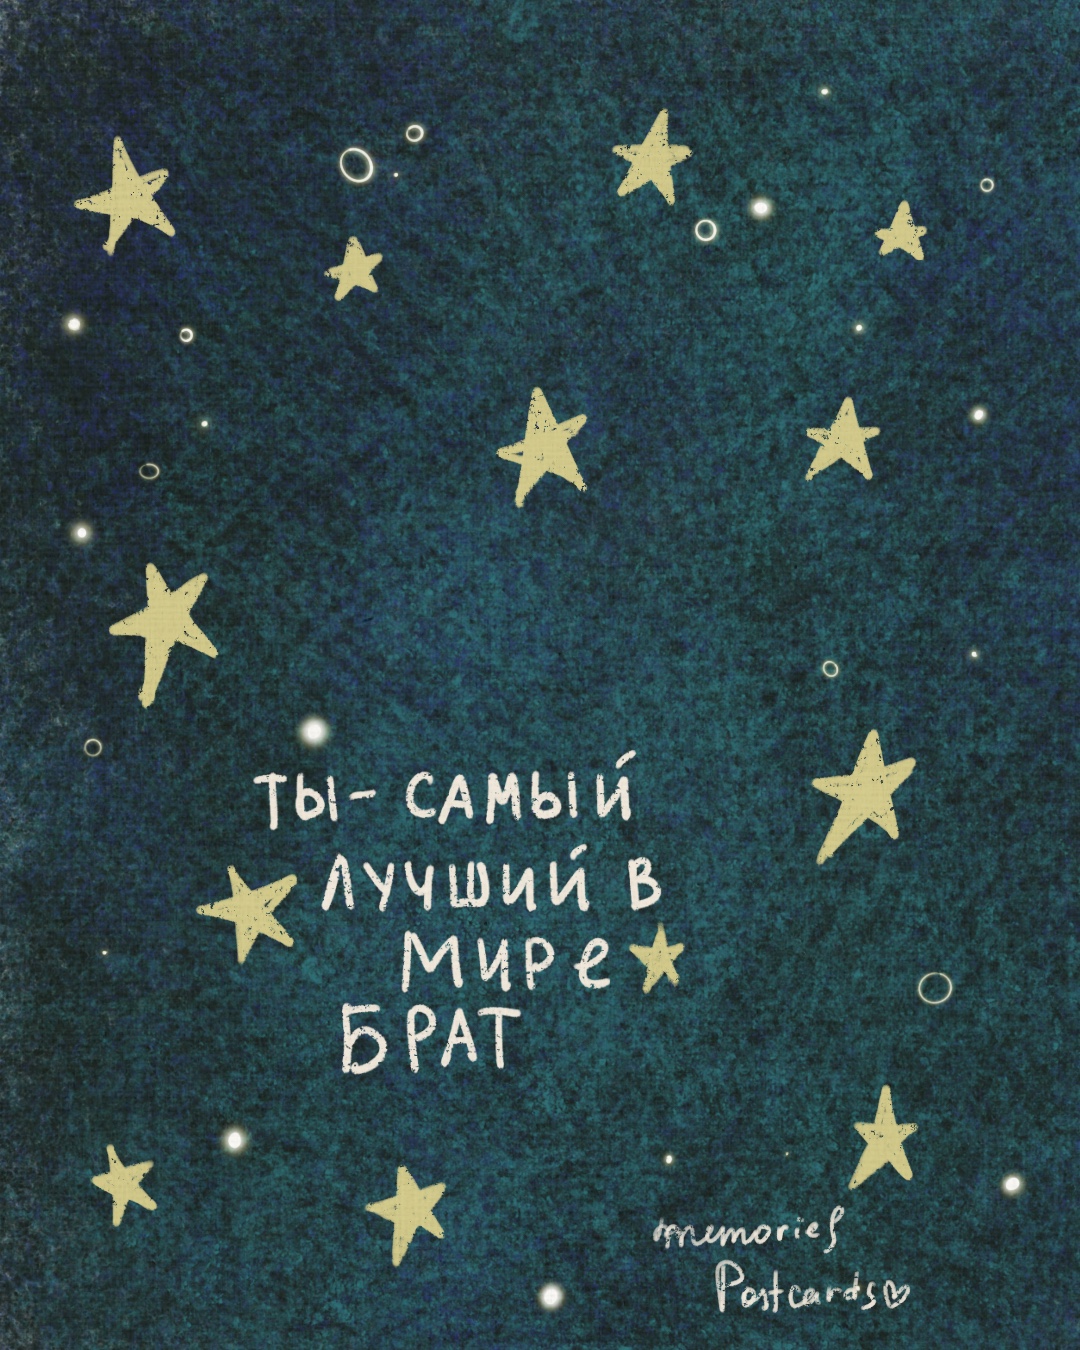 ТЫ- САМЫЙ
ЛУЧШИЙ В
МИРе
БРАТ
memories
Postcards♡